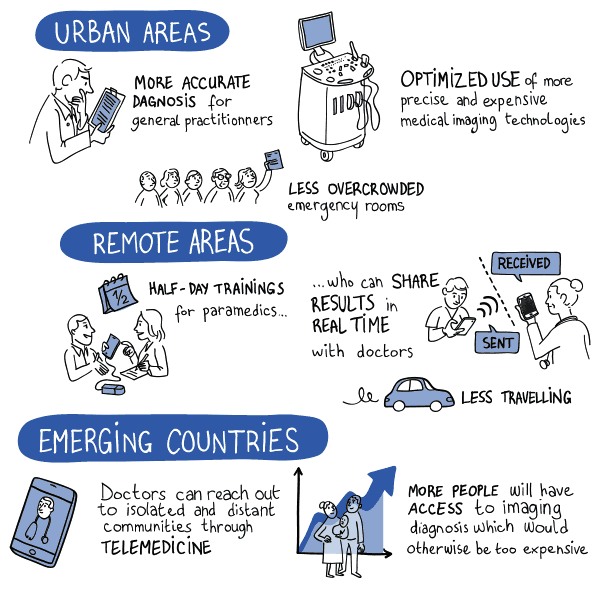 URBAN AREAS
MORE ACCURATE
DAGNOSIS for
general practitionners
OPTIMIZED USE of more
precise and expensive
medical imaging technologies
LESS OVERCROWDED
emergency rooms
REMOTE AREAS
1/2
HALF-DAY TRAININGS
for paramedics...
...who can SHARE
RESULTS in
REAL TIME
with doctors
RECEIVED
SENT
LESS TRAVELLING
EMERGING COUNTRIES
Doctors can reach out
to isolated and distant
communities through
TELEMEDICINE
MORE PEOPLE will have
ACCESS to imaging
diagnosis which would
otherwise be too expensive